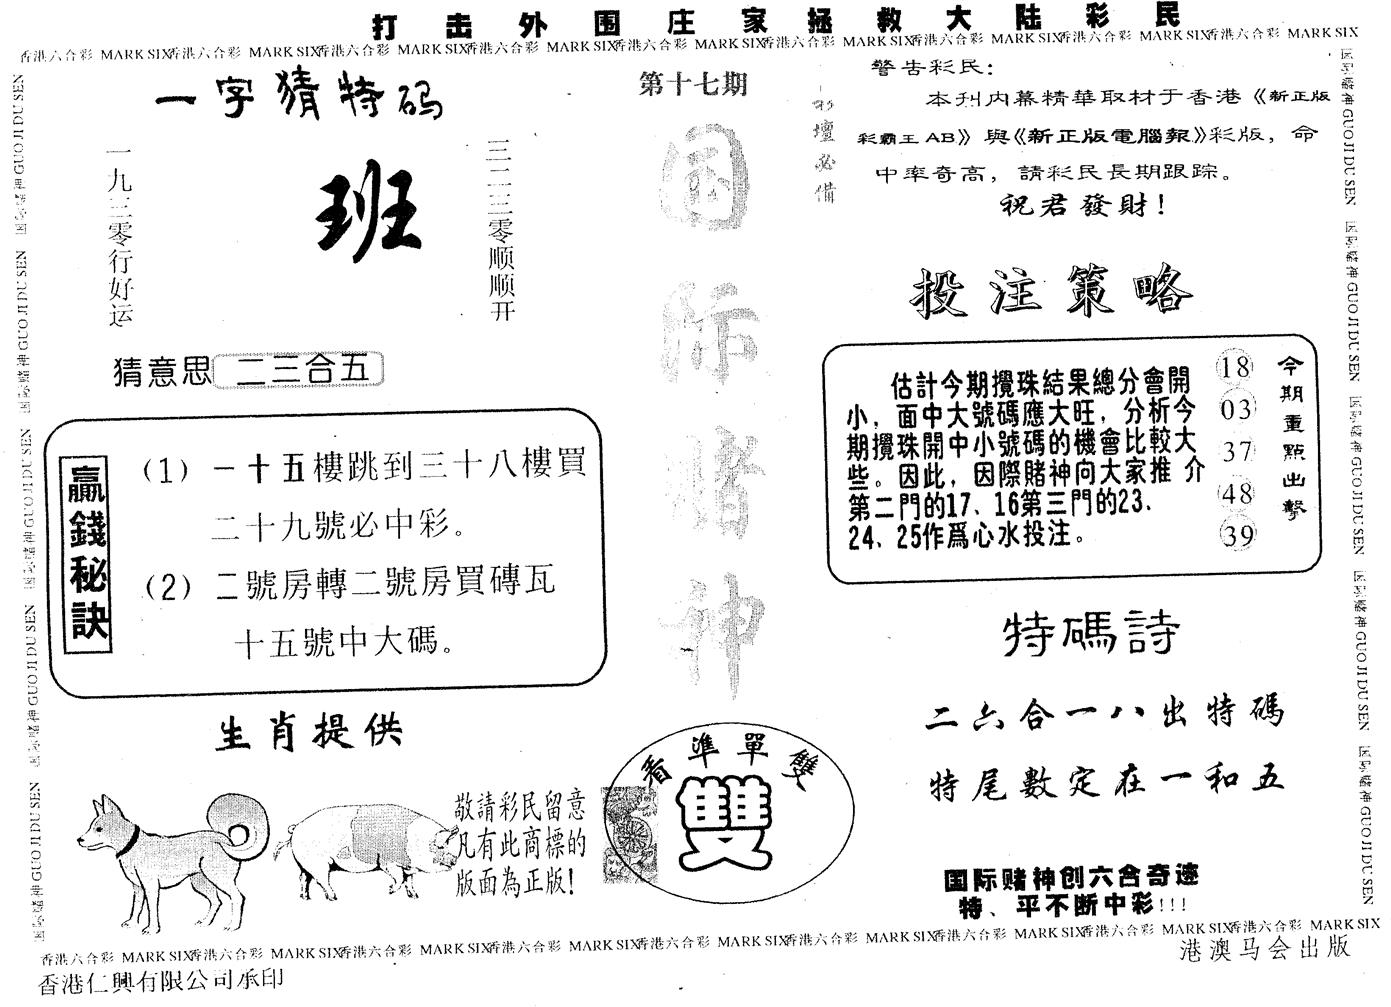 打击外围庄家拯救大陆彩民
香港六合彩 MARK SIX香港六合彩 MARK SIX香港六合彩 MARK SIX香港六合彩 MARK SIX香港六合彩 MARK SIX香港六合彩 MARK SIX香港六合彩 MARK SIX香港六合彩 MARK SIX香港六合彩 MARK SIX
一字猜特码
一九三零行好运
班
三二三零顺顺开
猜意思 二三合五
赢錢秘訣
(1) 一十五樓跳到三十八樓買
二十九號必中彩。
(2) 二號房轉二號房買磚瓦
十五號中大碼。
生肖提供
敬請彩民留意
凡有此商標的
版面為正版!
第十七期
国际赌神
彩壇必備
看準單雙
雙
警告彩民:
本刊内幕精華取材于香港《新正版
彩霸王AB》與《新正版電腦報》彩版, 命
中率奇高, 請彩民長期跟踪。
祝君發財!
投注策略
估計今期攪珠結果總分會開
小, 面中大號碼應大旺, 分析今
期攪珠開中小號碼的機會比較大
些。因此, 因際赌神向大家推介
第二門的17、16第三門的23、
24、25作爲心水投注。
18
03
37
48
39
今期重點出擊
特碼詩
二六合一八出特碼
特尾數定在一和五
国际赌神创六合奇速
特、平不断中彩!!!
国际赌神 GUO JI DU SEN 国际赌神 GUO JI DU SEN 国际赌神 GUO JI DU SEN 国际赌神 GUO JI DU SEN 国际赌神 GUO JI DU SEN
国际赌神 GUO JI DU SEN 国际赌神 GUO JI DU SEN 国际赌神 GUO JI DU SEN 国际赌神 GUO JI DU SEN 国际赌神 GUO JI DU SEN
香港六合彩 MARK SIX香港六合彩 MARK SIX香港六合彩 MARK SIX香港六合彩 MARK SIX香港六合彩 MARK SIX香港六合彩 MARK SIX香港六合彩 MARK SIX香港六合彩 MARK SIX香港六合彩 MARK SIX
香港仁興有限公司承印
港澳马会出版